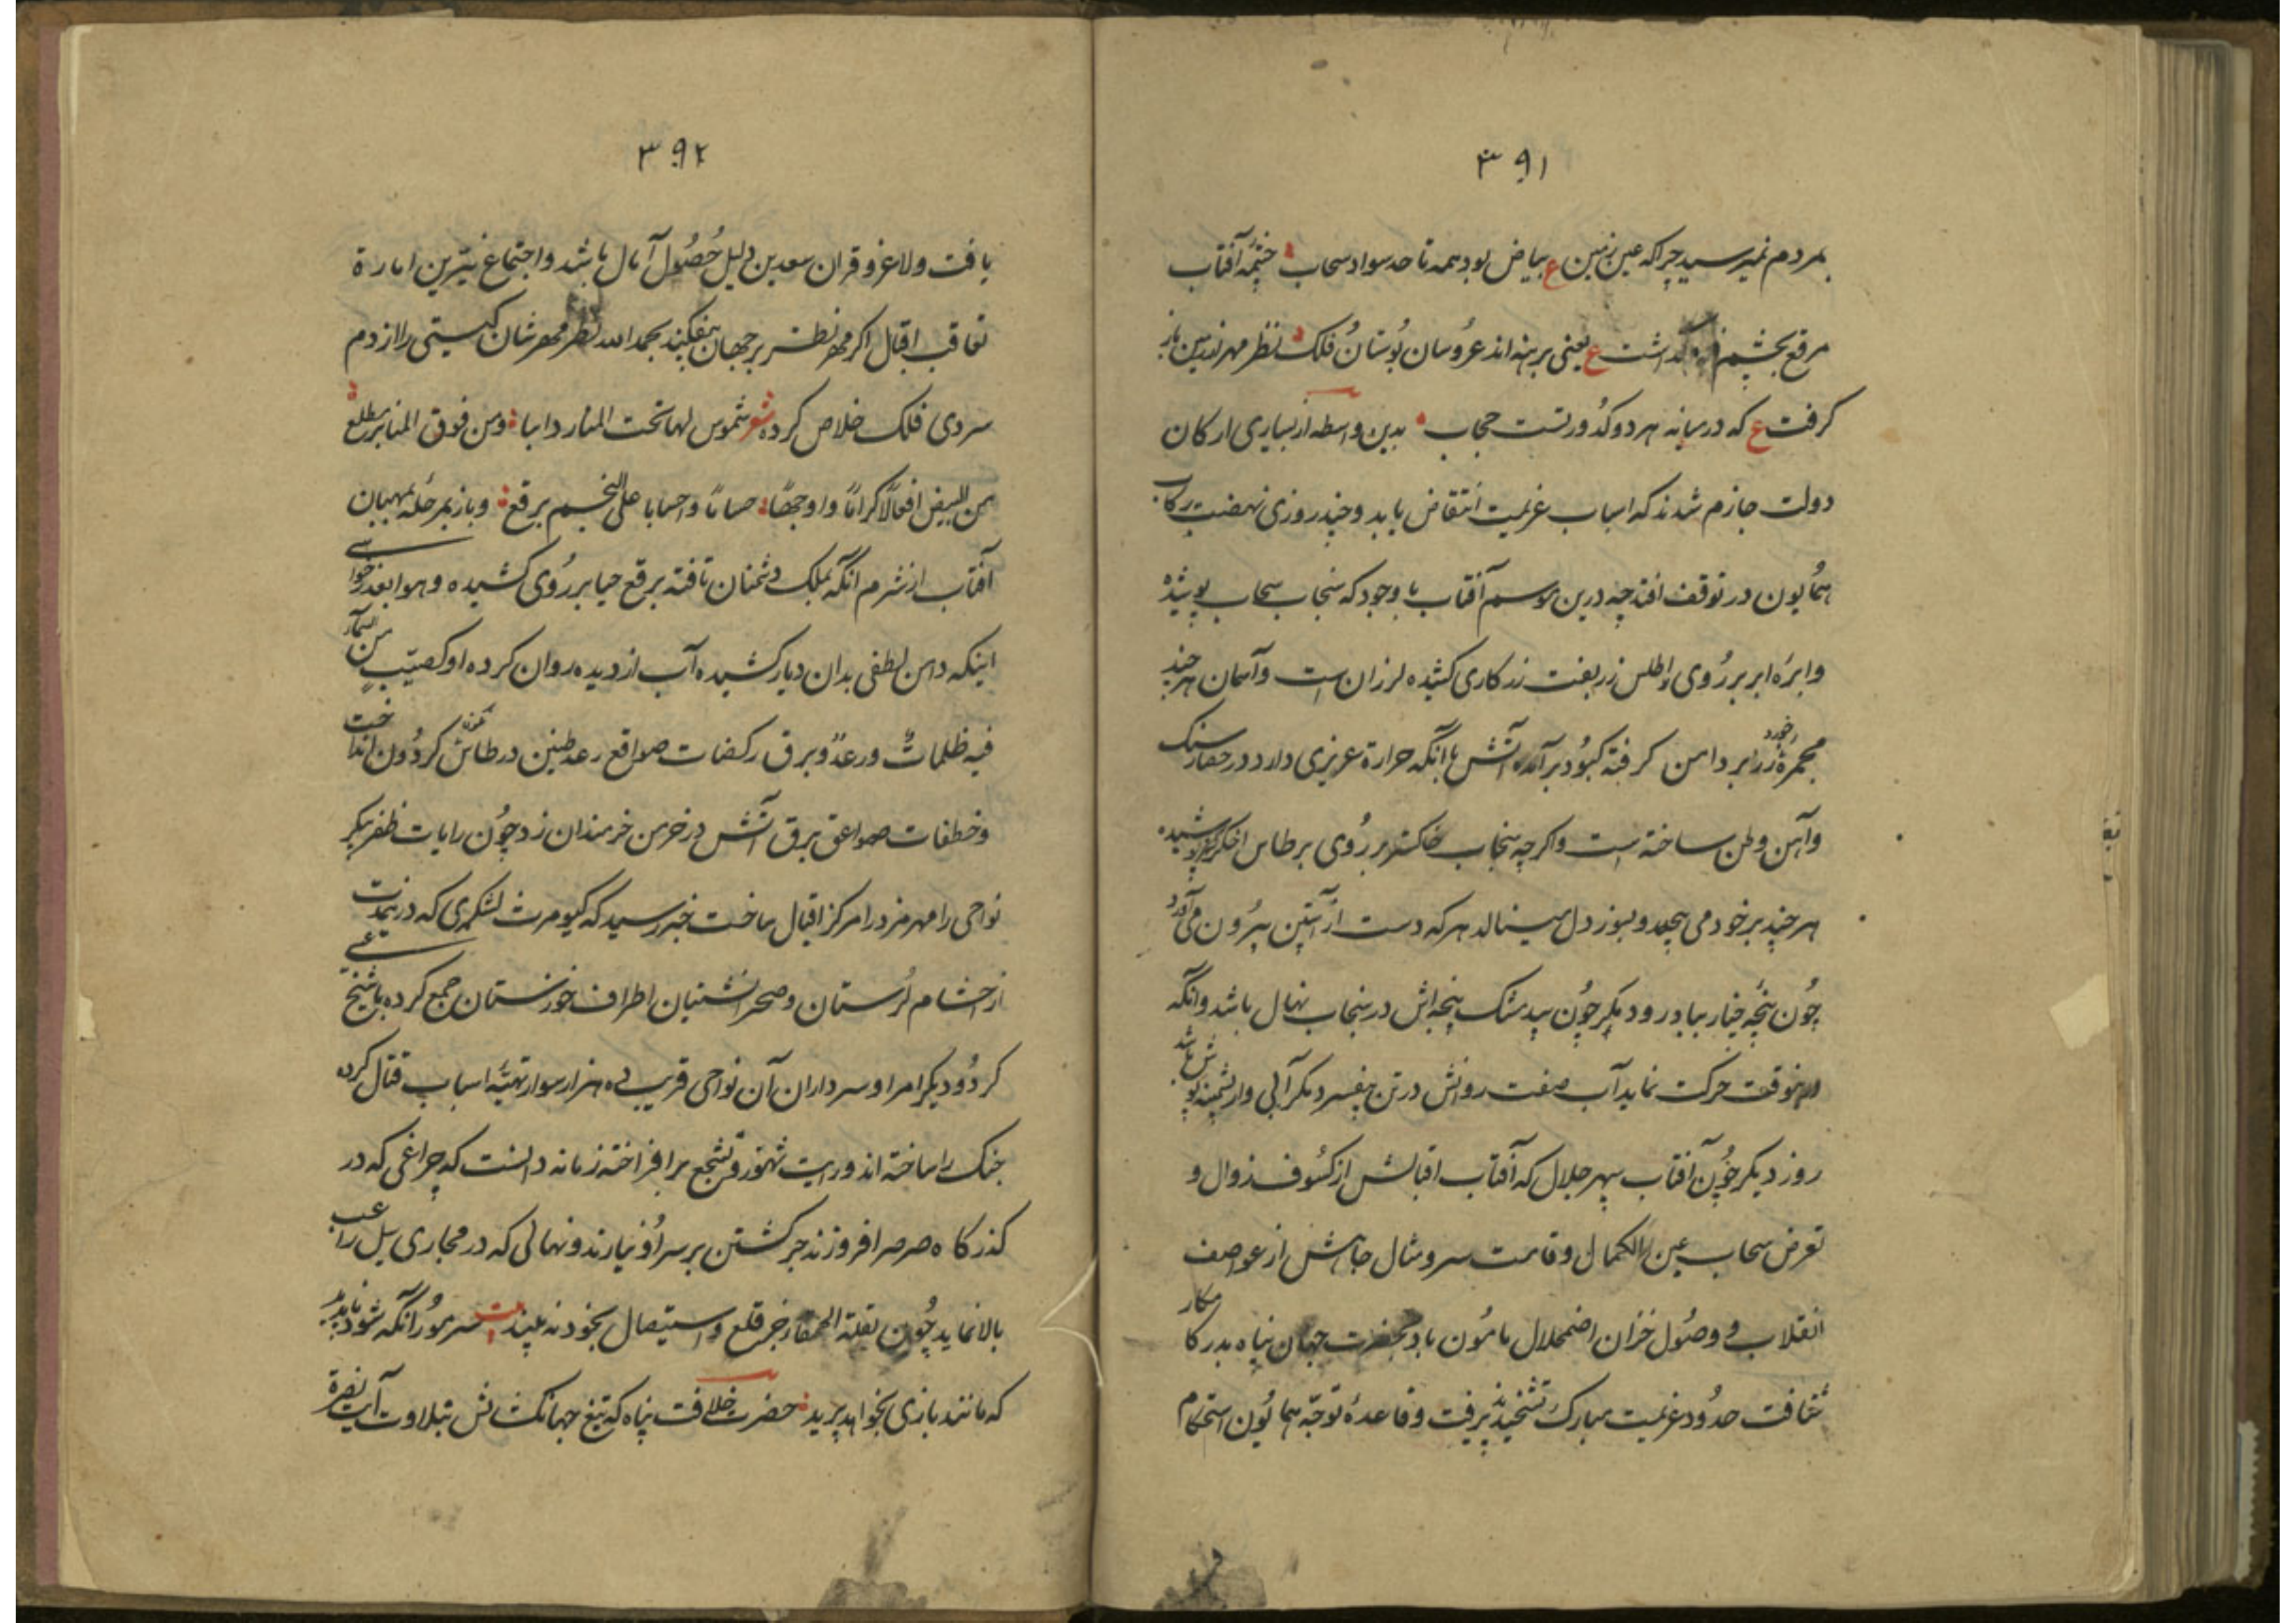 ۳۹۱
بمردم نمیرسید چرا که عین زمین ع بیاض بود همه تا حد سواد سحاب چشمهٔ آفتاب
مرقع بچشم فرو گذاشت ع یعنی برهنه اند عروسان بوستان فلک نظر مهر ازین باز
کرفت ع که در میانه هر دو کدورتست حجاب بدین واسطه از بسیاری ارکان
دولت جازم شدند که اسباب عزیمت انتقاض یابد و چند روزی نهضت رکاب
همایون در توقف افتد چه درین موسم آفتاب با وجود که سنجاب سحاب پوشیده
وابرهٔ ابر بر روی اطلس زربفت زرکاری کشیده لرزان است و آسمان هر چند
مجمرهٔ زر خورد بر دامن کرفته کبود برآمده آتش با آنکه حرارة غریزی دارد در حصار سنک
و آهن وطن ساخته است و اکرچه سنجاب خاکستر بر روی برطاس اخکر کشیده
هر چند بر خود می پیچد و بسوز دل مینالد هر که دست از آستین بیرون می آورد
چون پنجهٔ چنار بباد رود دیکر چون بید مشک پنجه اش در سنجاب نهال باشد و آنکه
حرکت نماید آب صفت روانش در تن بیفسرد مکر آبی وار پشمینه پوش باشد
روز دیکر چون آفتاب سپهر جلال که آفتاب اقبالش از کسوف زوال و
تعرض سحاب عین الکمال و قامت سرو مثال جاهش از عواصف
انقلاب و وصول خزان اضمحلال مامون باد بحضرت جهان پناه بدرکا
ثقافت حدود عزیمت مبارک تشحیذ پذیرفت و قاعدهٔ توجه همایون استحکام
۳۹۲
یافت ولا غرو قران سعدین دلیل حصول آمال باشد و اجتماع نیرین امارة
تعاقب اقبال اکر مهر نظر بر جهان بفکند بحمد الله نظر مهرشان کیتی را از دم
سردی فلک خلاص کرده شعر شموس لها تحت المنار دابها ومن فوق المنابر مطلع
من البیض افعالا کراما و اوجها حساما و احسابا علی النجم برقع و باز بمرحله
آفتاب از شرم آنکه بملک دشمنان تافته برقع حیا بر روی کشیده و هوا بعذر خواهی
اینکه دامن لطفی بدان دیار کشیده آب از دیده روان کرده او کصیب من السماء
فیه ظلمات ورعد وبرق رکضات صواقع رعد طنین در طاس نکون کردون انداخت
و خطفات صواعق برق آتش در خرمن خرمندان زد چون رایات ظفر پیکر
نواحی رامهرمز را مرکز اقبال ساخت خبر رسید که کیومرث لشکری که درین مدت
از حشام لرستان و صحرانشینان اطراف خوزستان جمع کرده با شیخ علی
کرد و دیکر امرا و سرداران آن نواحی قریب ده هزار سوار تهیهٔ اسباب قتال کرده
جنک را ساخته اند و رایت تهور و تشجع برافراخته زمانه دانست که چراغی که در
کذرکاه صرصر افروزند جز کشتن بر سر او نیارند و نهالی که در مجاری سیل راعب
بالا نماید چون بقلة الحمقا جز قلع و استیصال بخود نه بیند بیت سر مور آنکه شود ناپدید
که مانند بازی بخواهد پرید حضرت خلافت پناه که تیغ جهانکشاش بتلاوت آیت نصرة